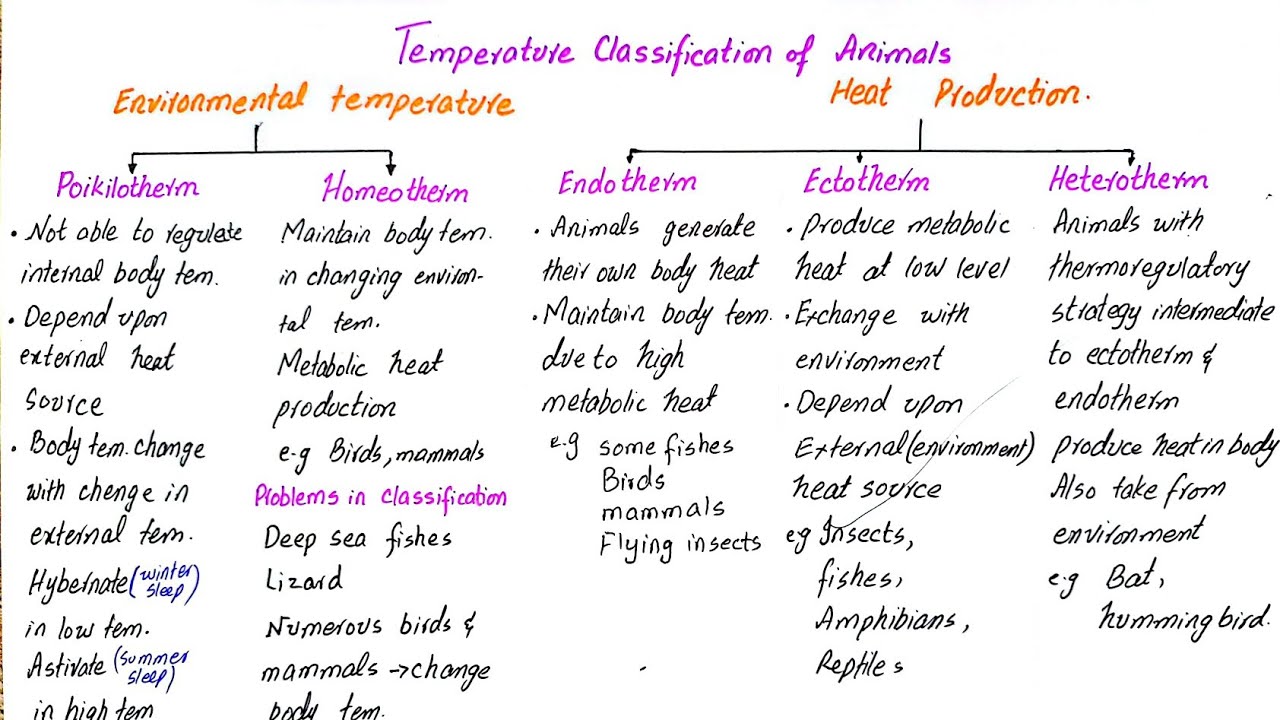 Temperature Classification of Animals
Environmental temperature
Poikilotherm
• Not able to regulate
internal body tem.
• Depend upon
external heat
source
• Body tem. change
with chenge in
external tem.
Hybernate (winter
sleep)
in low tem.
Astivate (summer
sleep)
in high tem
Homeotherm
Maintain body tem.
in changing environ-
tal tem.
Metabolic heat
production
e.g Birds, mammals
Problems in classification
Deep sea fishes
Lizard
Numerous birds &
mammals → change
body tem.
Heat Production.
Endotherm
• Animals generate
their own body heat
• Maintain body tem.
due to high
metabolic heat
e.g some fishes
Birds
mammals
Flying insects
Ectotherm
• Produce metabolic
heat at low level
• Exchange with
environment
• Depend upon
External (environment)
heat source
eg Insects,
fishes,
Amphibians,
Reptiles
Heterotherm
Animals with
thermoregulatory
strategy intermediate
to ectotherm &
endotherm
produce heat in body
Also take from
environment
e.g Bat,
humming bird.